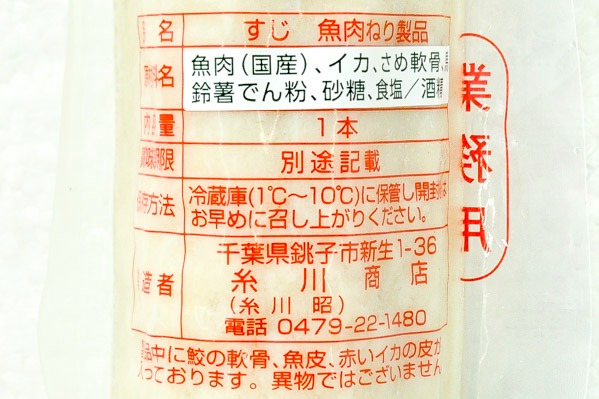 名 すじ 魚肉ねり製品
名 魚肉(国産)、イカ、さめ軟骨、
鈴薯でん粉、砂糖、食塩/酒精
内容量 1本
期限 別途記載
保存方法 冷蔵庫(1℃~10℃)に保管し開封後は
お早めに召し上がりください。
千葉県銚子市新生1-36
造者 糸川商店
(糸川 昭)
電話 0479-22-1480
品中に鮫の軟骨、魚皮、赤いイカの皮が
入っております。異物ではございません
業務用